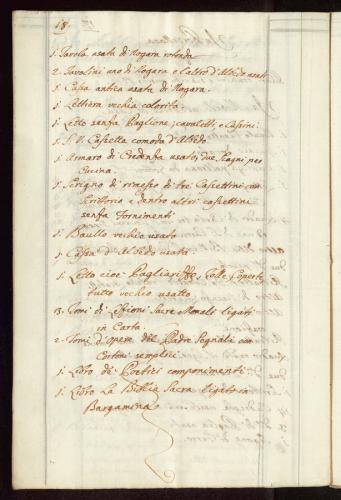 18.
1. Tavola usata di Nogara rotonda
2. Tavolini uno di Nogara e l'altro d'Albedo usati
1. Cassa antica usata di Nogara.
1. Lettiera vechia colorita.
1. Letto senza Paglione; cavaletti e Cossini.
1. S. V. Cassetta comoda d'Albedo
1. Armaro di Credenza usato, due Scagni per
Cucina
1. Scrigno di rimesso di tre Cassettini con
Scrittorio e dentro altri cassettini
senza Fornimenti
1. Baullo vechio usato
1. Cassa d'Albedo usata.
1. Letto cioè Pagliarizzo, Colle, Coperte,
tutto vechio usatto
13. Tomi di Lezioni Sacre Morali ligati
in Carta
2. Tomi d'opere del Padre Segnali con
Cartoni semplici
1. Libro de' Poetici componimenti
1. Libro La Biblia Sacra ligato in
Bargamina